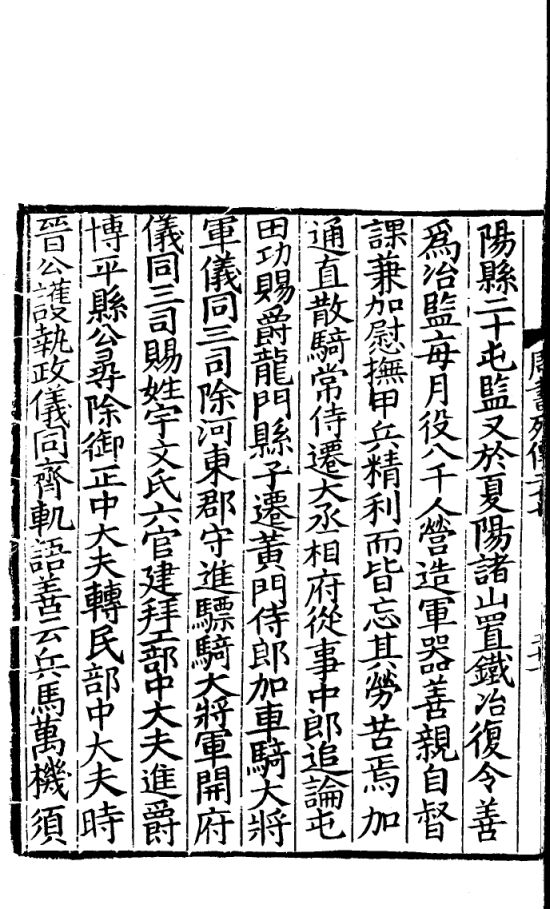 陽縣二十屯監又於夏陽諸山置鐵冶復令善
爲冶監每月役八千人營造軍器善親自督
課兼加慰撫甲兵精利而皆忘其勞苦焉加
通直散騎常侍遷大丞相府從事中郎追論屯
田功賜爵龍門縣子遷黃門侍郎加車騎大將
軍儀同三司除河東郡守進驃騎大將軍開府
儀同三司賜姓宇文氏六官建拜工部中大夫進爵
博平縣公尋除御正中大夫轉民部中大夫時
晉公護執政儀同齊軌語善云兵馬萬機須